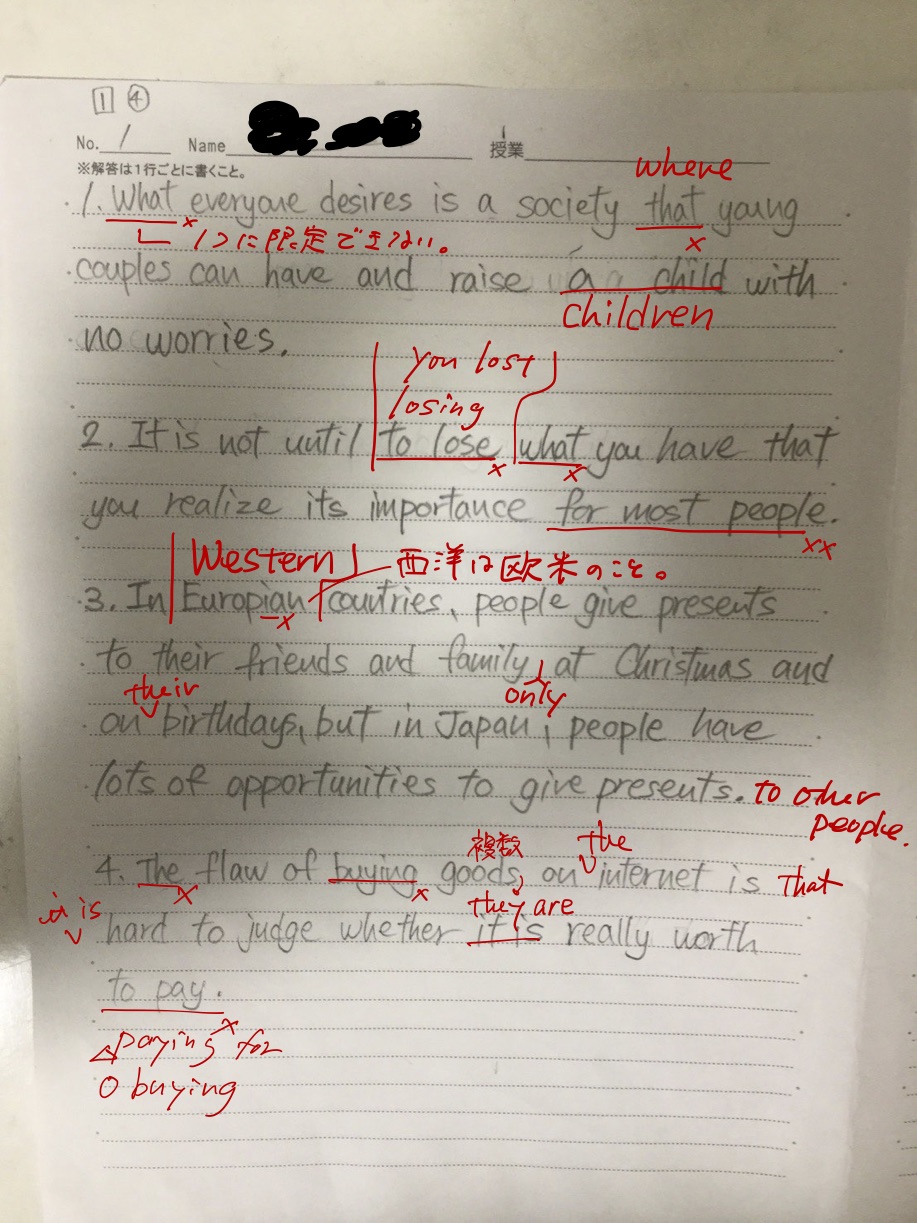 1 4
No. 1 Name 授業
※解答は1行ごとに書くこと。
where
1. What everyone desires is a society that young
× ×
1つに限定できない。
couples can have and raise a child with
children
no worries.
you lost
losing
2. It is not until to lose what you have that
× ×
you realize its importance for most people.
××
Western 西洋は欧米のこと。
3. In Europian countries, people give presents
×
to their friends and family at Christmas and
their only
on birthdays, but in Japan, people have
lots of opportunities to give presents. to other
people.
複数 the
4. The flaw of buying goods on internet is that
× ×
it is they are
hard to judge whether it is really worth
to pay.
×
△paying for
○ buying